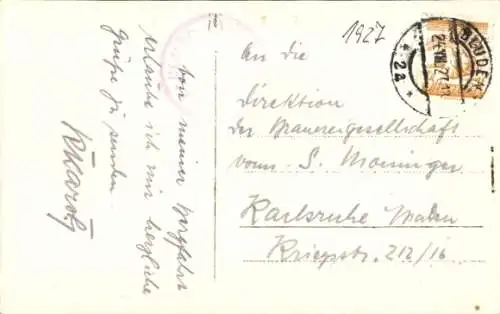 von meiner Bergfahrt
erlaube ich mir herzliche
Grüße zu senden
1927
BLUDENZ
24.VIII.27
* 2a *
An die
Direktion
der Brauereigesellschaft
vorm. S. Moninger
Karlsruhe Baden
Kriegsstr. 212/16